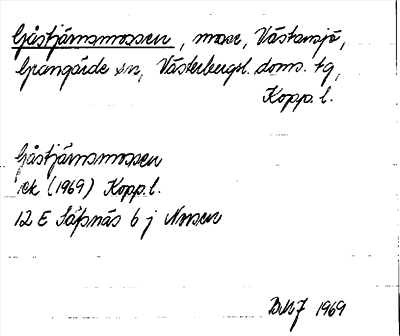 Gåstjärnsmossen, mosse, Västansjö,
Grangärde sn, Västerbergsl. doms. tg,
Kopp. l.
Gåstjärnsmossen
ek (1969) Kopp. l.
12 E Säfsnäs 6 j
1969